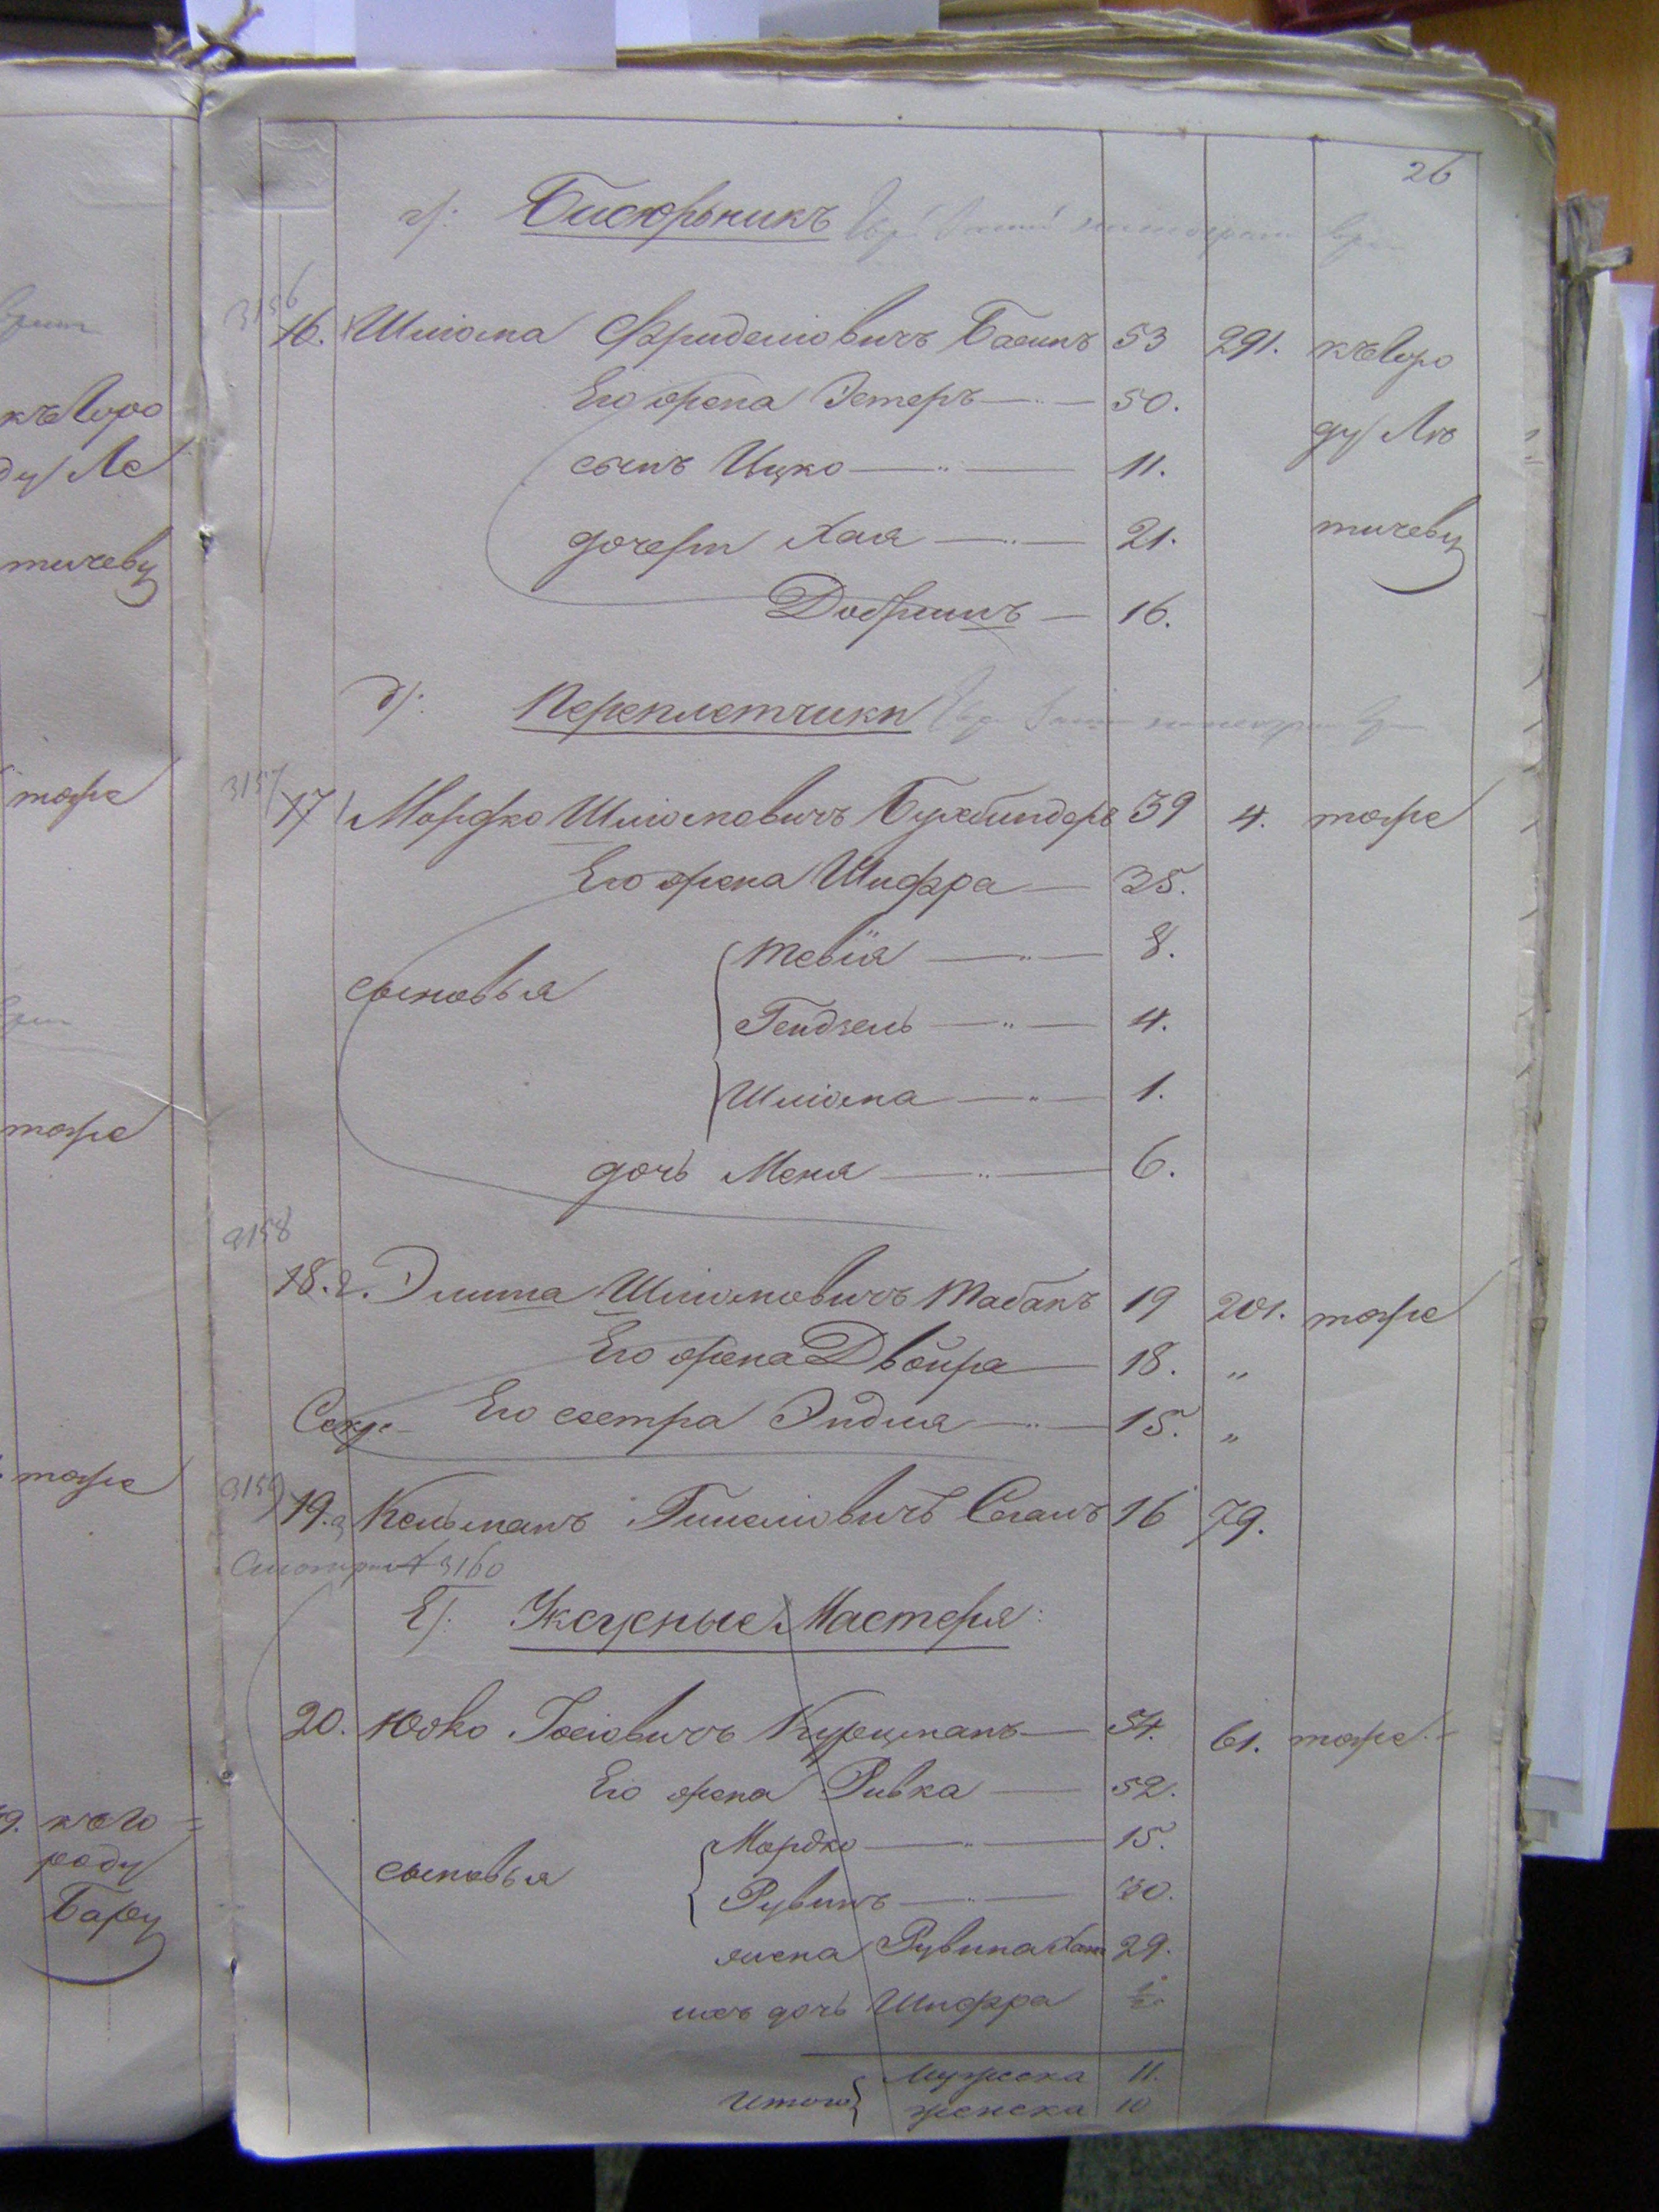 26
г): Бисюрникъ
3156
16. Шліома Фриделіовичъ Басинъ 53 291. къ горо
Его жена Эстеръ — 50.
ду Ле
сынъ Ицко — 11.
дочери Хая — 21.
тичеву
Добришъ — 16.
д): Переплетчики
3157
17 Мордко Шліомовичъ Бухбиндеръ 39 4. тоже
Его жена Шифра — 35.
сыновья
Тевія — 8.
Гендзель — 4.
Шліома — 1.
дочь Меня — 6.
3158
18. 2. Элита Шліомовичъ Табакъ 19 201. тоже
Его жена Двойра — 18. „
Его сестра Эйдля — 15. „
3159
19. Кельманъ Гинеліовичъ Сеганъ 16 79.
Смотри 3160
Е): Уксусные Мастера:
20. Юдко Іосіовичъ Курцманъ — 54. 61. тоже
Его жена Ривка — 52.
сыновья
Мордко — 15.
Рувинъ — 30.
жена Рувина Хая 29.
ихъ дочь Шифра ½
Итого
мужеска 11.
женска 10
къ горо
ду Ле
тичеву
тоже
тоже
тоже
9. къ го
роду
Бару